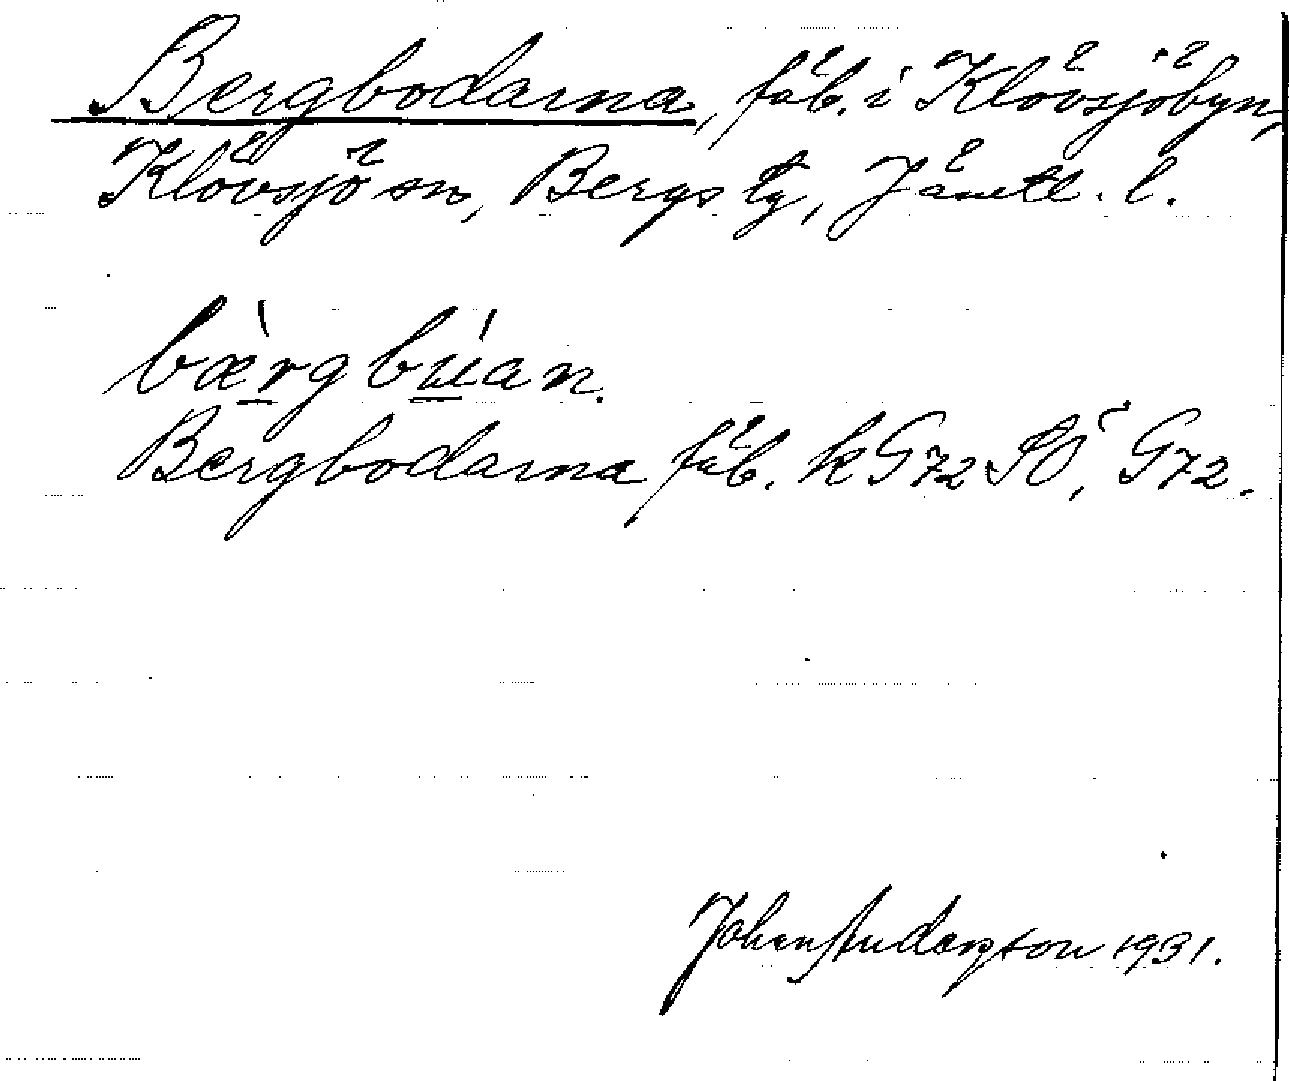 Bergbodarna, fäb. i Klövsjöbyn,
Klövsjö sn, Bergs tg, Jämtl. l.
bæ̀rgbúan.
Bergbodarna fäb. k G72 SO, G72.
Johan Anderzson 1931.